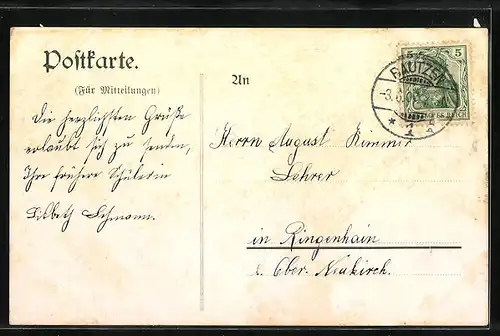 Postkarte.
(Für Mitteilungen)
Die herzlichsten Grüße
erlaubt sich zu senden,
Ihre frühere Schülerin
Lisbeth Lehmann.
An
Herrn August Kimmer
Lehrer
in Ringenhain
b. Ober-Neukirch.
5 5
BAUTZEN
-3.
* 1
REICH